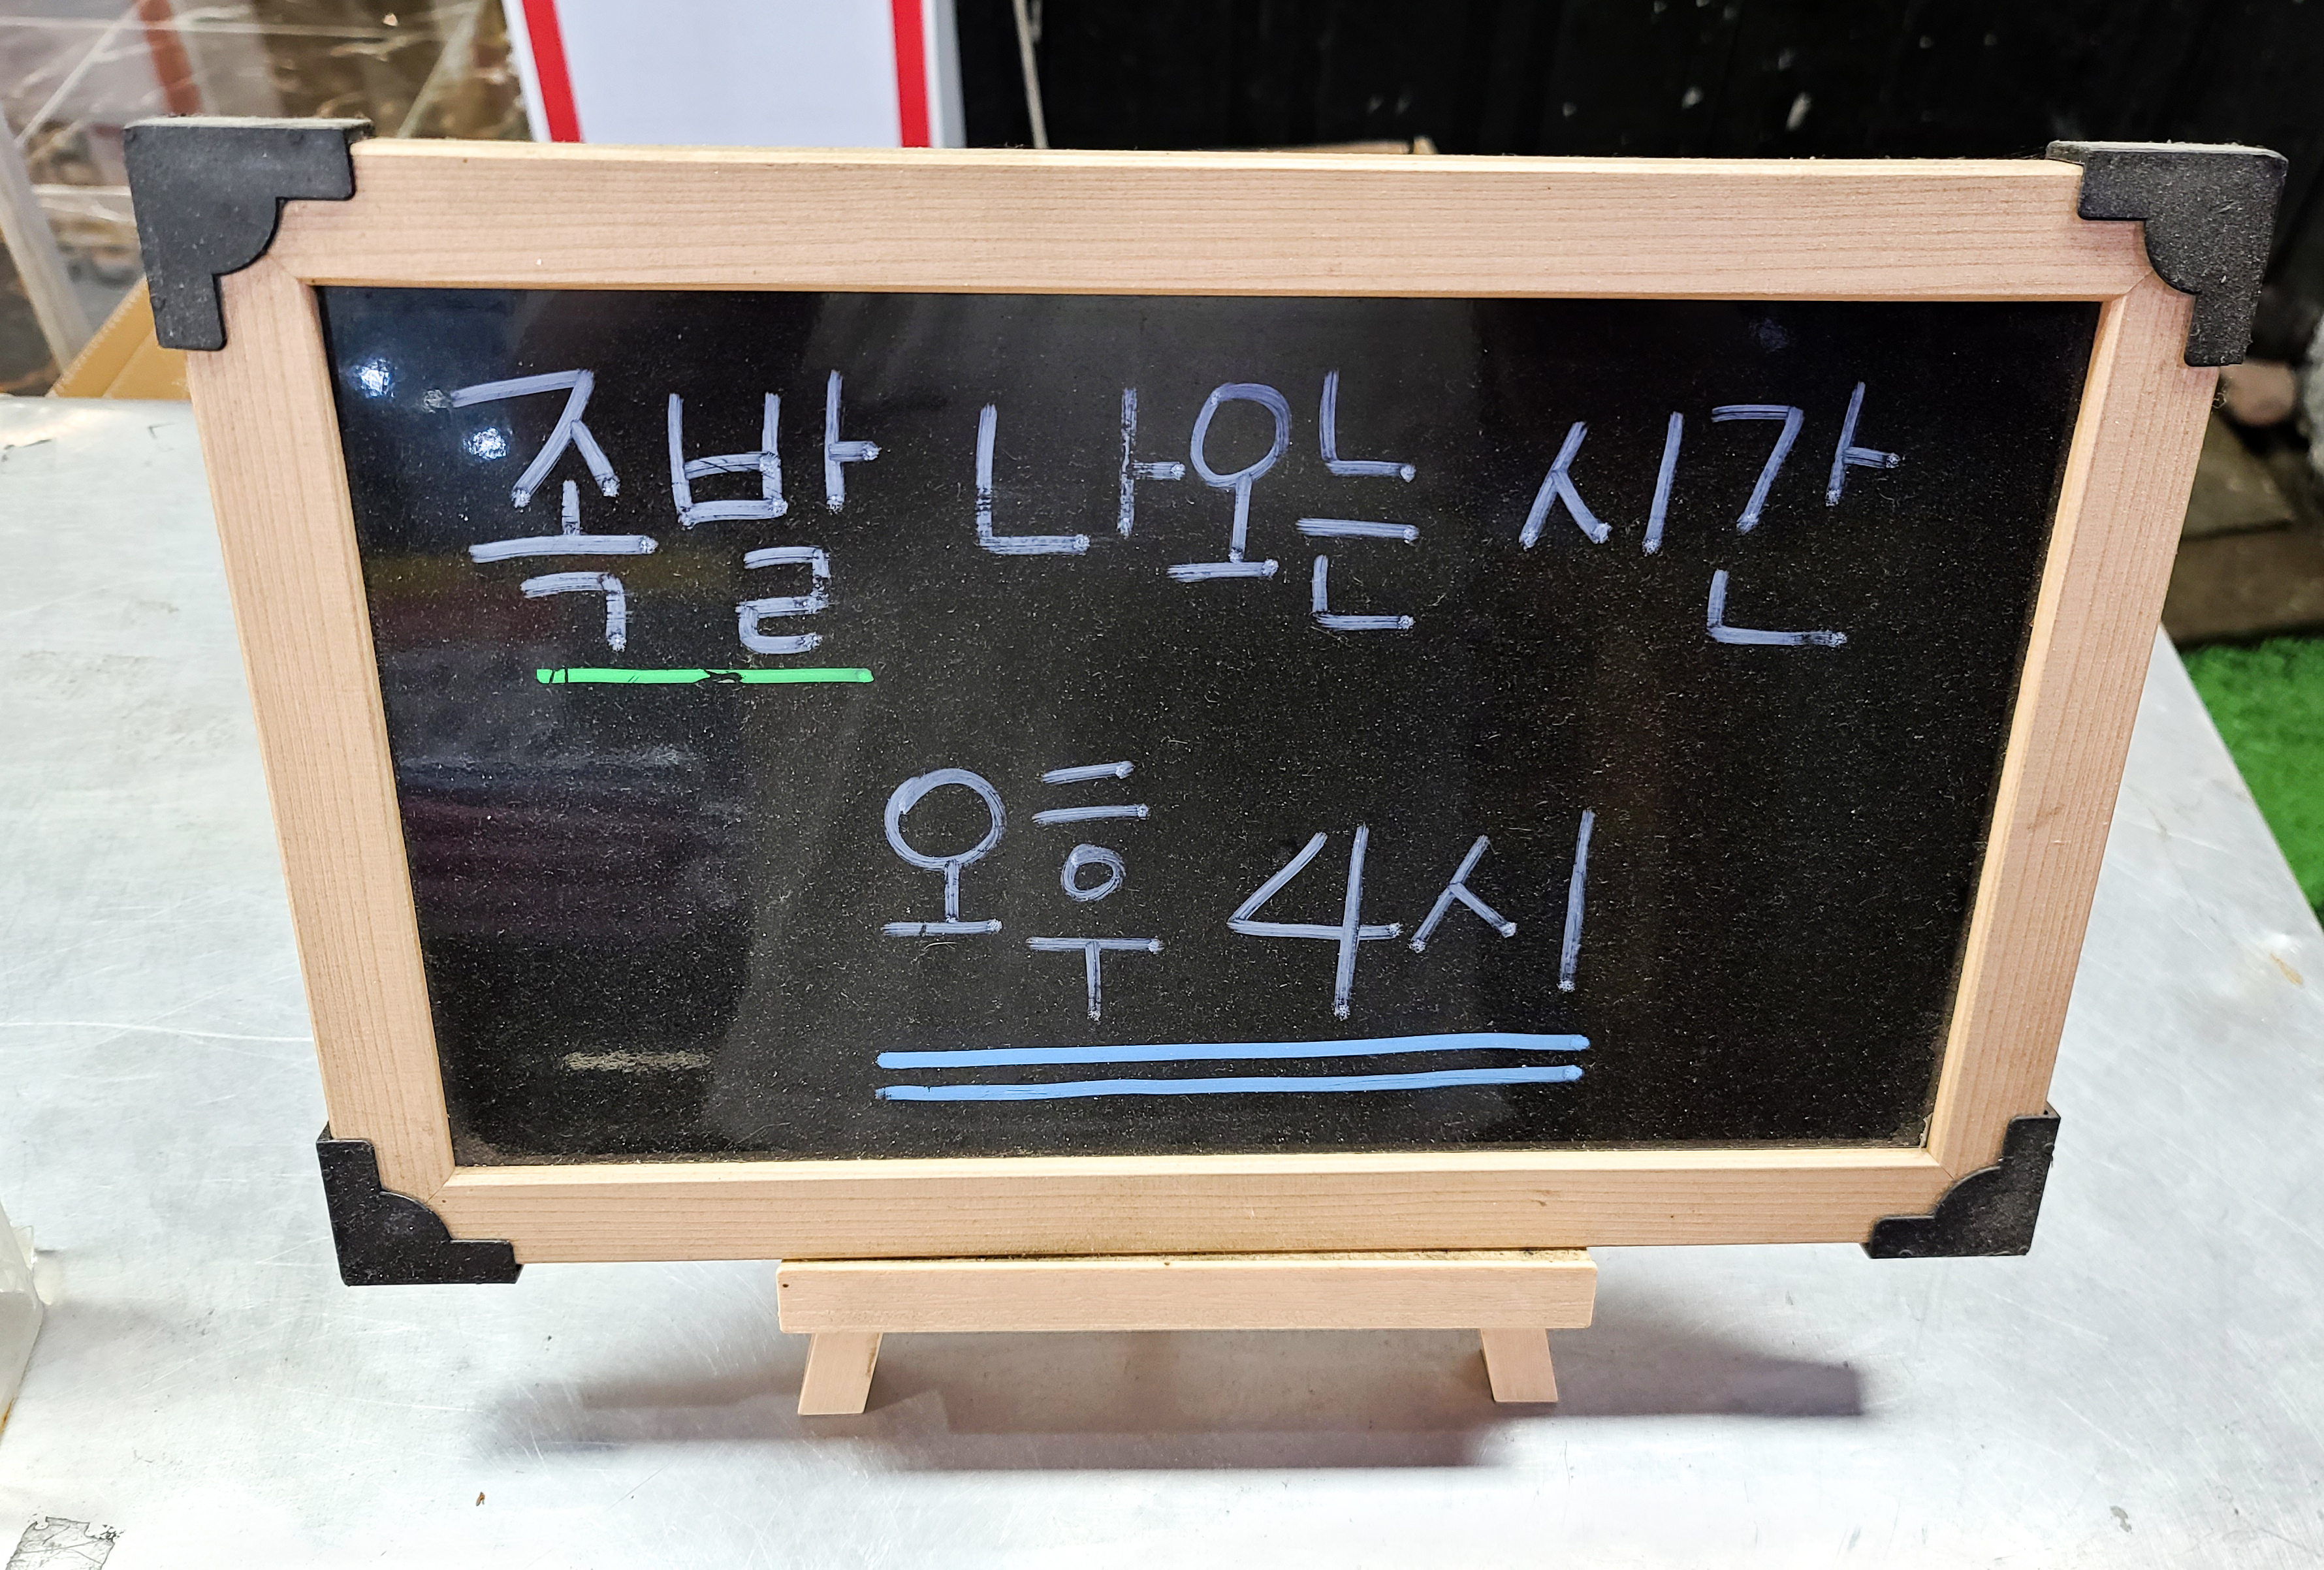 족발 나오는 시간
오후 4시